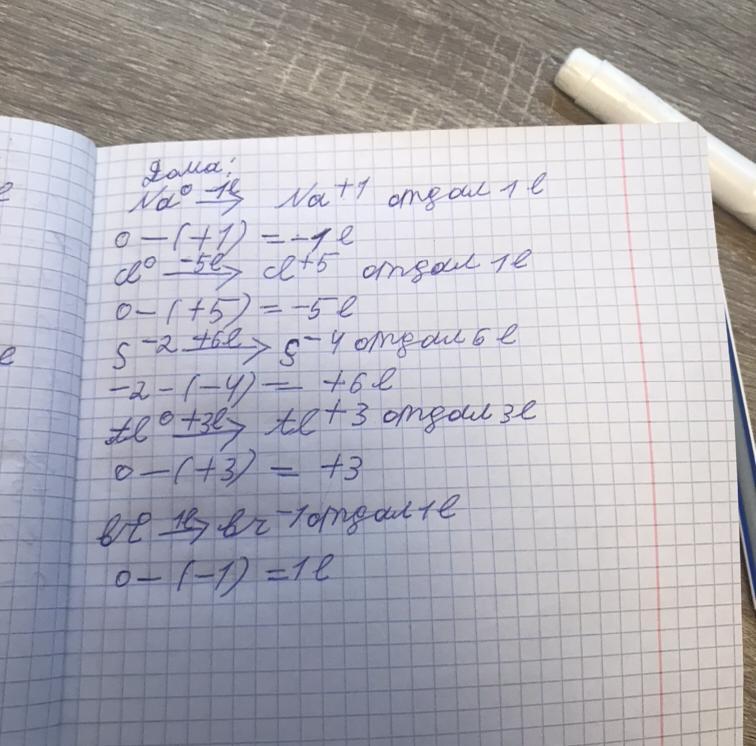 Дома:
Na⁰ -1e→ Na+1 отдал 1e
0-(+1) = -1e
Cl⁰ -5e→ Cl+5 отдал 1e
0-(+5) = -5e
S-2 +6e→ S-4 отдал 6e
-2-(-4) = +6e
Al⁰ +3e→ Al+3 отдал 3e
0-(+3) = +3
1e→ Br-1 отдал 1e
0-(-1) = 1e